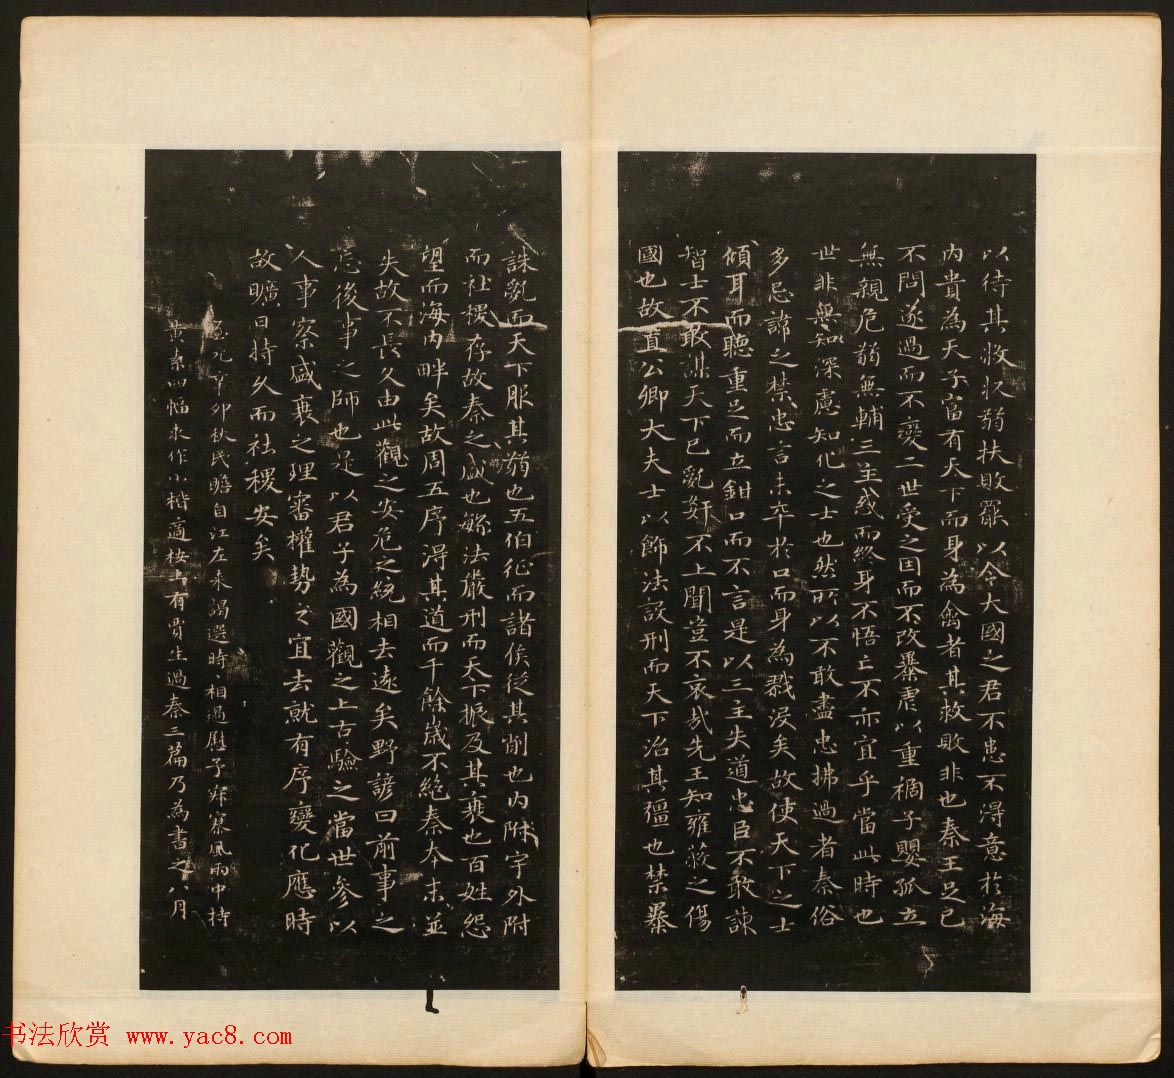 以待其敝收弱扶敗罷以令大國之君不患不得意於海
内貴為天子富有天下而身為禽者其救敗非也秦王足已
不問遂過而不變二世受之因而不改暴虐以重禍子嬰孤立
無親危弱無輔三主惑而終身不悟亡不亦宜乎當此時也
世非無知深慮知化之士也然所以不敢盡忠拂過者秦俗
多忌諱之禁忠言未卒於口而身為戮沒矣故使天下之士
傾耳而聽重足而立鉗口而不言是以三主失道忠臣不敢諫
智士不敢謀天下已亂奸不上聞豈不哀哉先王知雍蔽之傷
國也故置公卿大夫士以飾法設刑而天下治其彊也禁暴
誅亂而天下服其弱也五伯征而諸侯從其削也内附守外附
而社稷存故秦之盛也繁法嚴刑而天下振及其衰也百姓怨
望而海内畔矣故周五序得其道而千餘歲不絕秦本末並
失故不長久由此觀之安危之統相去遠矣野諺曰前事之
忘後事之師也是以君子為國觀之上古驗之當世參以
人事察盛衰之理審權勢之宜去就有序變化應時
故曠日持久而社稷安矣
至元辛卯秋民瞻自江左來謁選時相過慰予寂寥風雨中持
黃素四幅求作小楷適案上有賈生過秦三篇乃為書之八月
书法欣赏 www.yac8.com